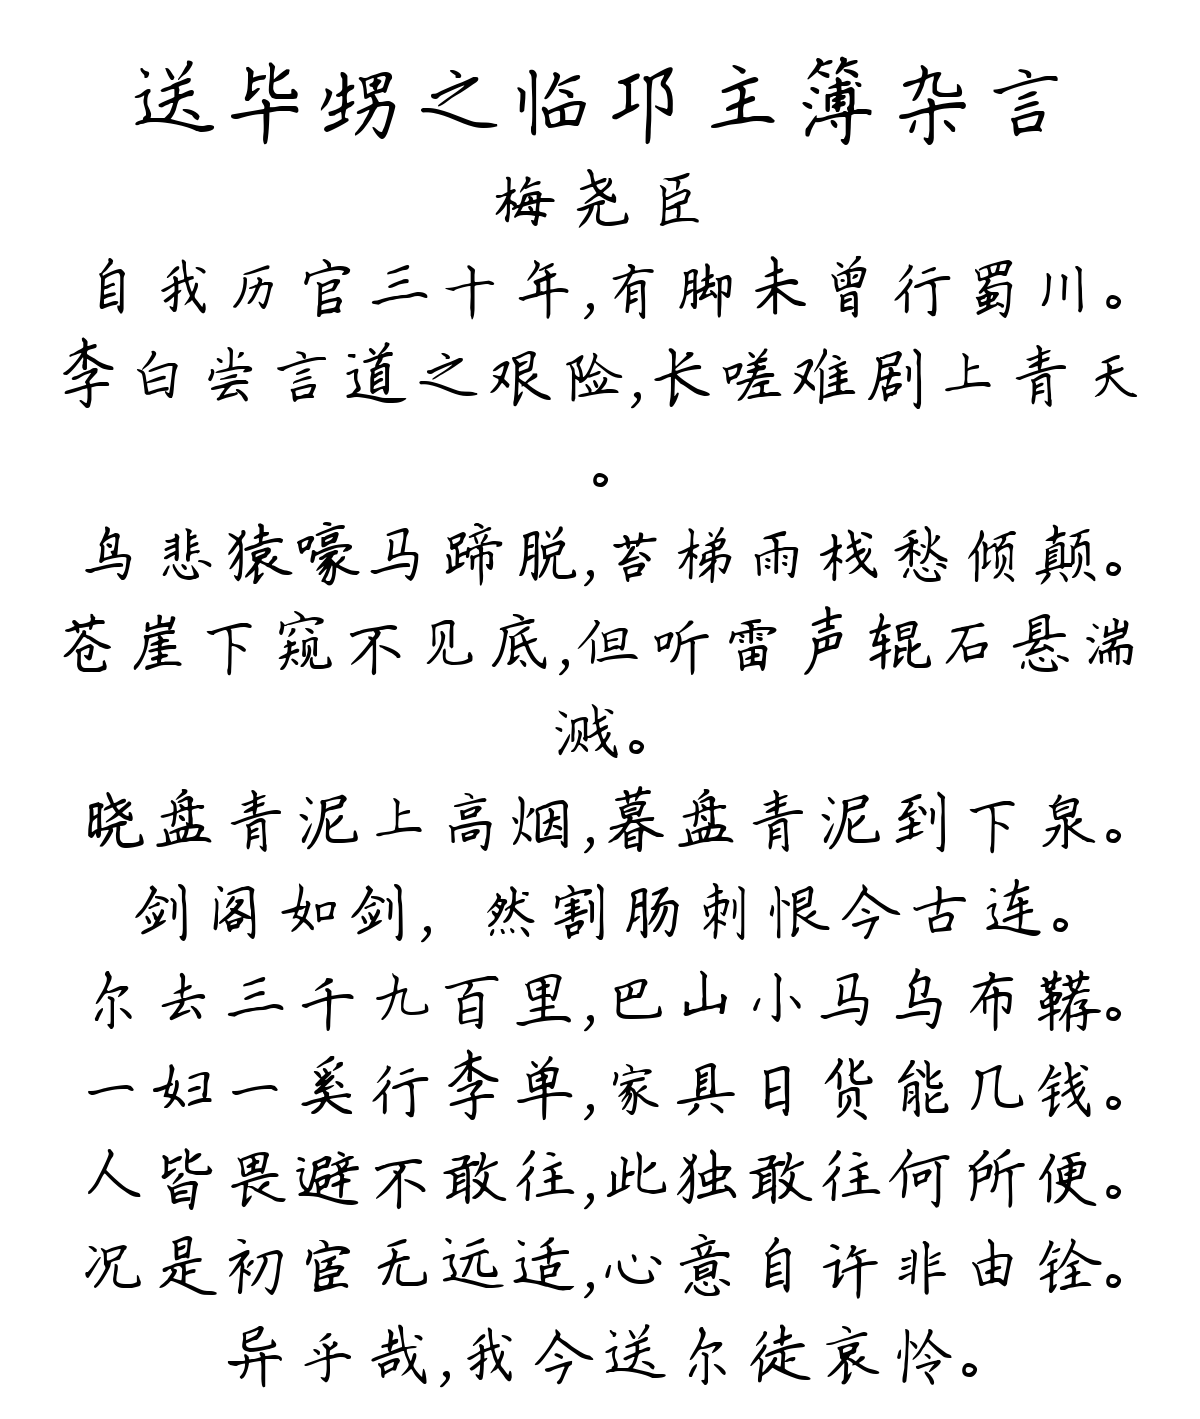 送毕甥之临邛主簿杂言
梅尧臣
自我历官三十年,有脚未曾行蜀川。
李白尝言道之艰险,长嗟难剧上青天
。
鸟悲猿嚎马蹄脱,苔梯雨栈愁倾颠。
苍崖下窥不见底,但听雷声辊石悬湍
溅。
晓盘青泥上高烟,暮盘青泥到下泉。
剑阁如剑，然割肠刺恨今古连。
尔去三千九百里,巴山小马乌布鞯。
一妇一奚行李单,家具日货能几钱。
人皆畏避不敢往,此独敢往何所便。
况是初宦无远适,心意自许非由铨。
异乎哉,我今送尔徒哀怜。